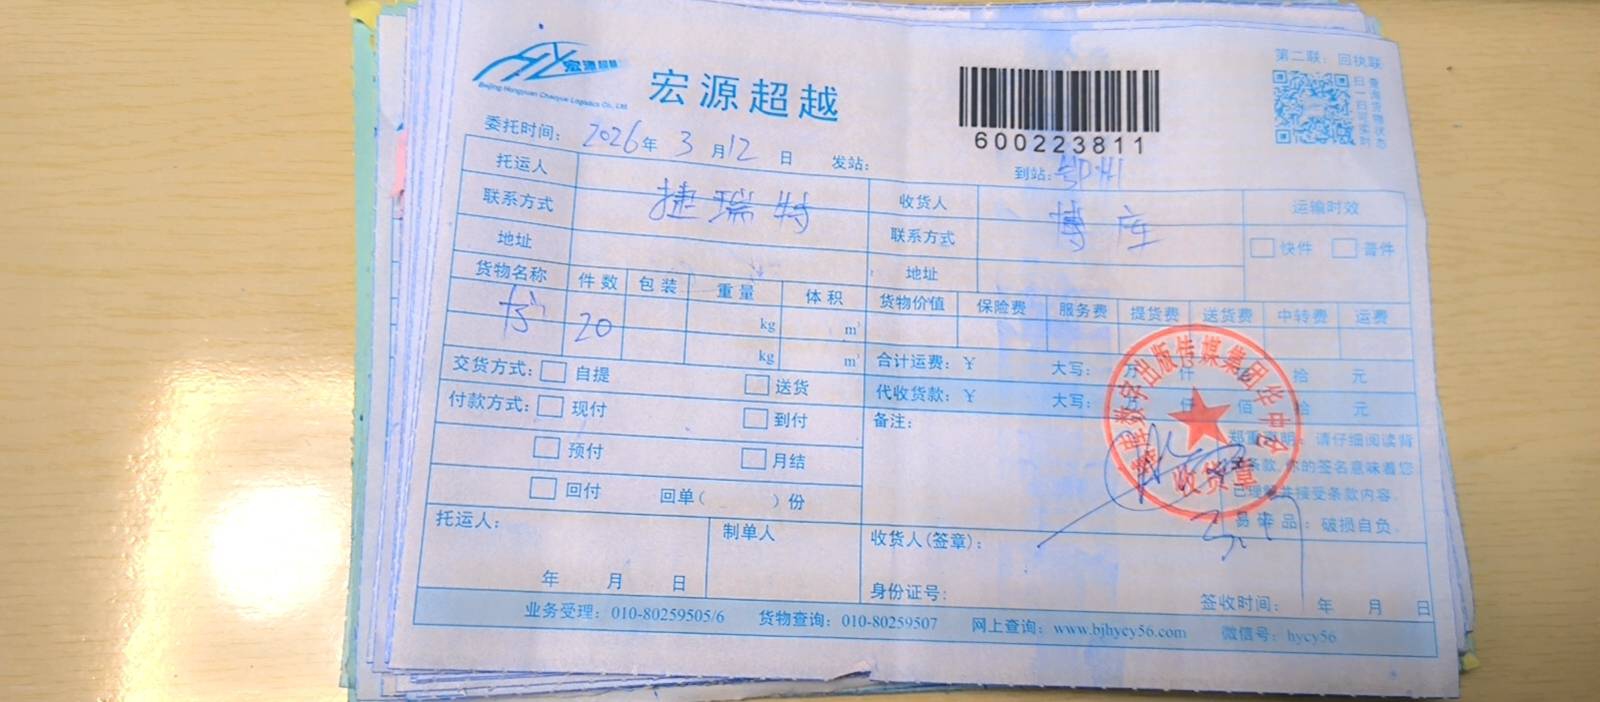 第二联：回执联
宏源超越
Beijing Hongyuan Chaoyue Logistics Co., Ltd.
宏源超越
600223811
扫一扫
查询货物实时状态
委托时间： 2026年 3月12日 发站： 到站：鄂州
托运人 捷瑞特 收货人 博库 运输时效
联系方式 联系方式 快件 普件
地址 地址
货物名称 件数 包装 重量 体积 货物价值 保险费 服务费 提货费 送货费 中转费 运费
书 20 kg m³
kg m³
交货方式： 自提 送货 合计运费：¥ 大写： 万 仟 拾 元
付款方式： 现付 到付 代收货款：¥ 大写： 仟 佰 拾 元
预付 月结 备注：
回付 回单（ ）份
郑重声明：请仔细阅读背
条款，你的签名意味着您
已理解并接受条款内容。
易碎品：破损自负。
数字出版传媒集团华中
收货章
托运人： 制单人 收货人(签章)：
年 月 日 身份证号： 签收时间： 年 月 日
业务受理：010-80259505/6 货物查询：010-80259507 网上查询：www.bjhycy56.com 微信号：hycy56